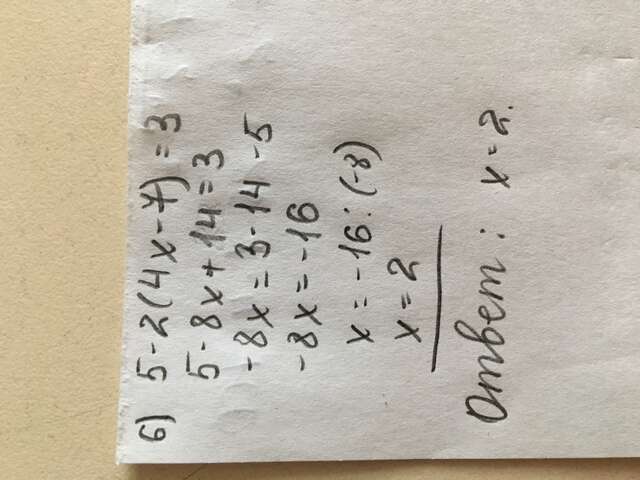 б) 5-2(4x-7)=3
5-8x+14=3
-8x=3-14-5
-8x=-16
x=-16:(-8)
x=2
Ответ: x=2.